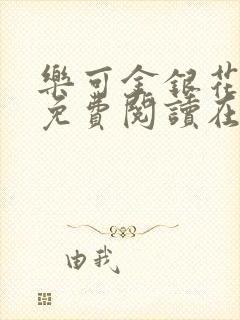 樂可金銀花
免費閱讀在
由我